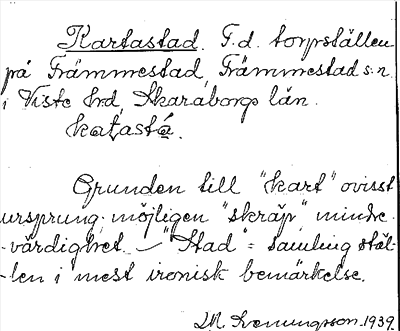 Kartastad. F.d. torpställen
på Främmestad, Främmestad s:n.
i Viste hrd, Skaraborgs län.
Grunden till "kart" ovisst
ursprung. möjligen "skräp" mindre-
-värdighet - "Stad" = samling stäl-
-len i mest ironisk bemärkelse.
1939.